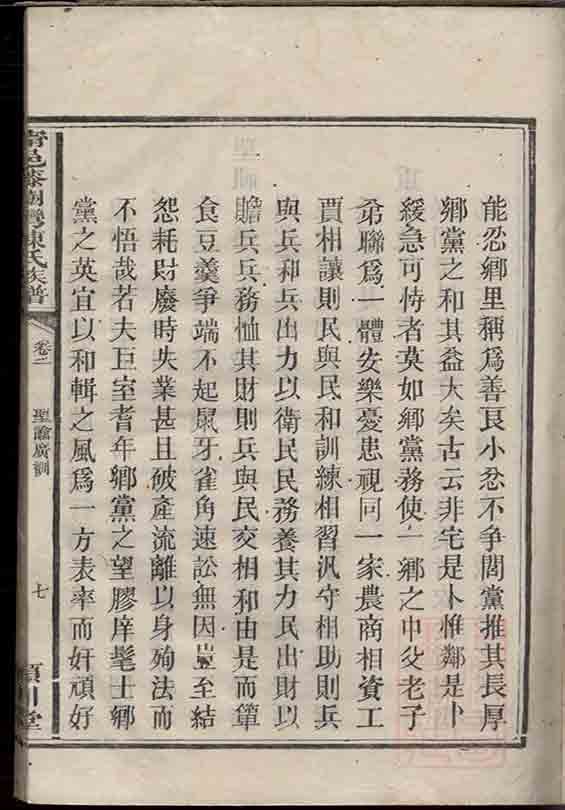 能忍鄉里稱爲善良小忿不爭閭黨推其長厚
鄉黨之和其益大矣古云非宅是卜惟鄰是卜
緩急可恃者莫如鄉黨務使一鄉之中父老子
弟聯爲一體安樂憂患視同一家農商相資工
賈相讓則民與民和訓練相習汛守相助則兵
與兵和兵出力以衛民民務養其力民出財以
贍兵兵務恤其財則兵與民交相和由是而簞
食豆羹爭端不起鼠牙雀角速訟無因豈至結
怨耗財廢時失業甚且破產流離以身殉法而
不悟哉若夫巨室耆年鄉黨之望膠庠髦士鄉
黨之英宜以和輯之風爲一方表率而奸頑好
邑藤湖灣陳氏族譜
卷二
聖諭廣訓
七
潁川堂